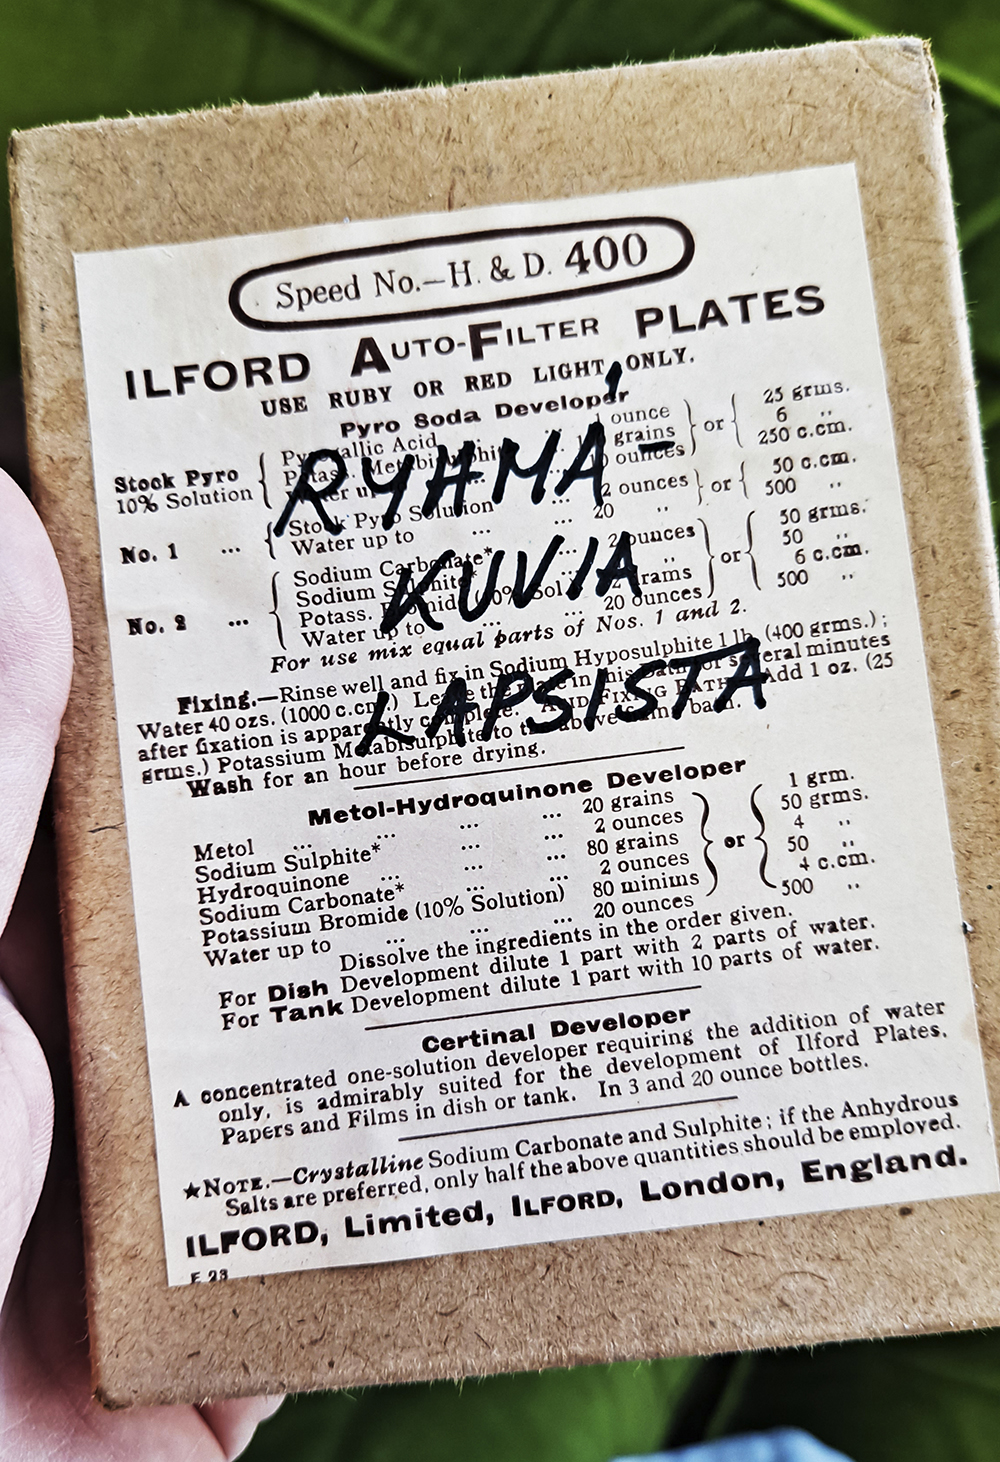 Speed No.—H. & D. 400
ILFORD AUTO-FILTER PLATES
USE RUBY OR RED LIGHT ONLY.
Pyro Soda Developer
Stock Pyro 10% Solution
Pyrogallic Acid ... ... 1 ounce or 25 grms.
Potass. Metabisulphite grains 6 ,,
Water up ounces 250 c.cm.
RYHMÄ-
No. 1 ... Stock Pyro Solution ... 2 ounces or 50 c.cm.
Water up to ... ... 20 ,, 500 ,,
KUVIA
No. 2 ... Sodium Carbonate* ... 2 ounces or 50 grms.
Sodium Sulphite* ,, 50 ,,
Potass. Bromide (10% Sol. grams 6 c.cm.
Water up to ... ... 20 ounces 500 ,,
For use mix equal parts of Nos. 1 and 2.
LAPSISTA
Fixing.—Rinse well and fix in Sodium Hyposulphite 1 lb. (400 grms.);
Water 40 ozs. (1000 c.cm.) Leave the plate in this bath for several minutes
after fixation is apparently complete. ACID FIXING BATH—Add 1 oz. (25
grms.) Potassium Metabisulphite to the above bath.
Wash for an hour before drying.
Metol-Hydroquinone Developer
Metol ... ... ... 20 grains or 1 grm.
Sodium Sulphite* ... ... 2 ounces 50 grms.
Hydroquinone ... ... ... 80 grains 4 ,,
Sodium Carbonate* ... ... 2 ounces 50 ,,
Potassium Bromide (10% Solution) 80 minims 4 c.cm.
Water up to ... ... ... 20 ounces 500 ,,
Dissolve the ingredients in the order given.
For Dish Development dilute 1 part with 2 parts of water.
For Tank Development dilute 1 part with 10 parts of water.
Certinal Developer
A concentrated one-solution developer requiring the addition of water
only, is admirably suited for the development of Ilford Plates,
Papers and Films in dish or tank. In 3 and 20 ounce bottles.
★NOTE.—Crystalline Sodium Carbonate and Sulphite; if the Anhydrous
Salts are preferred, only half the above quantities should be employed.
ILFORD, Limited, ILFORD, London, England.
F. 23